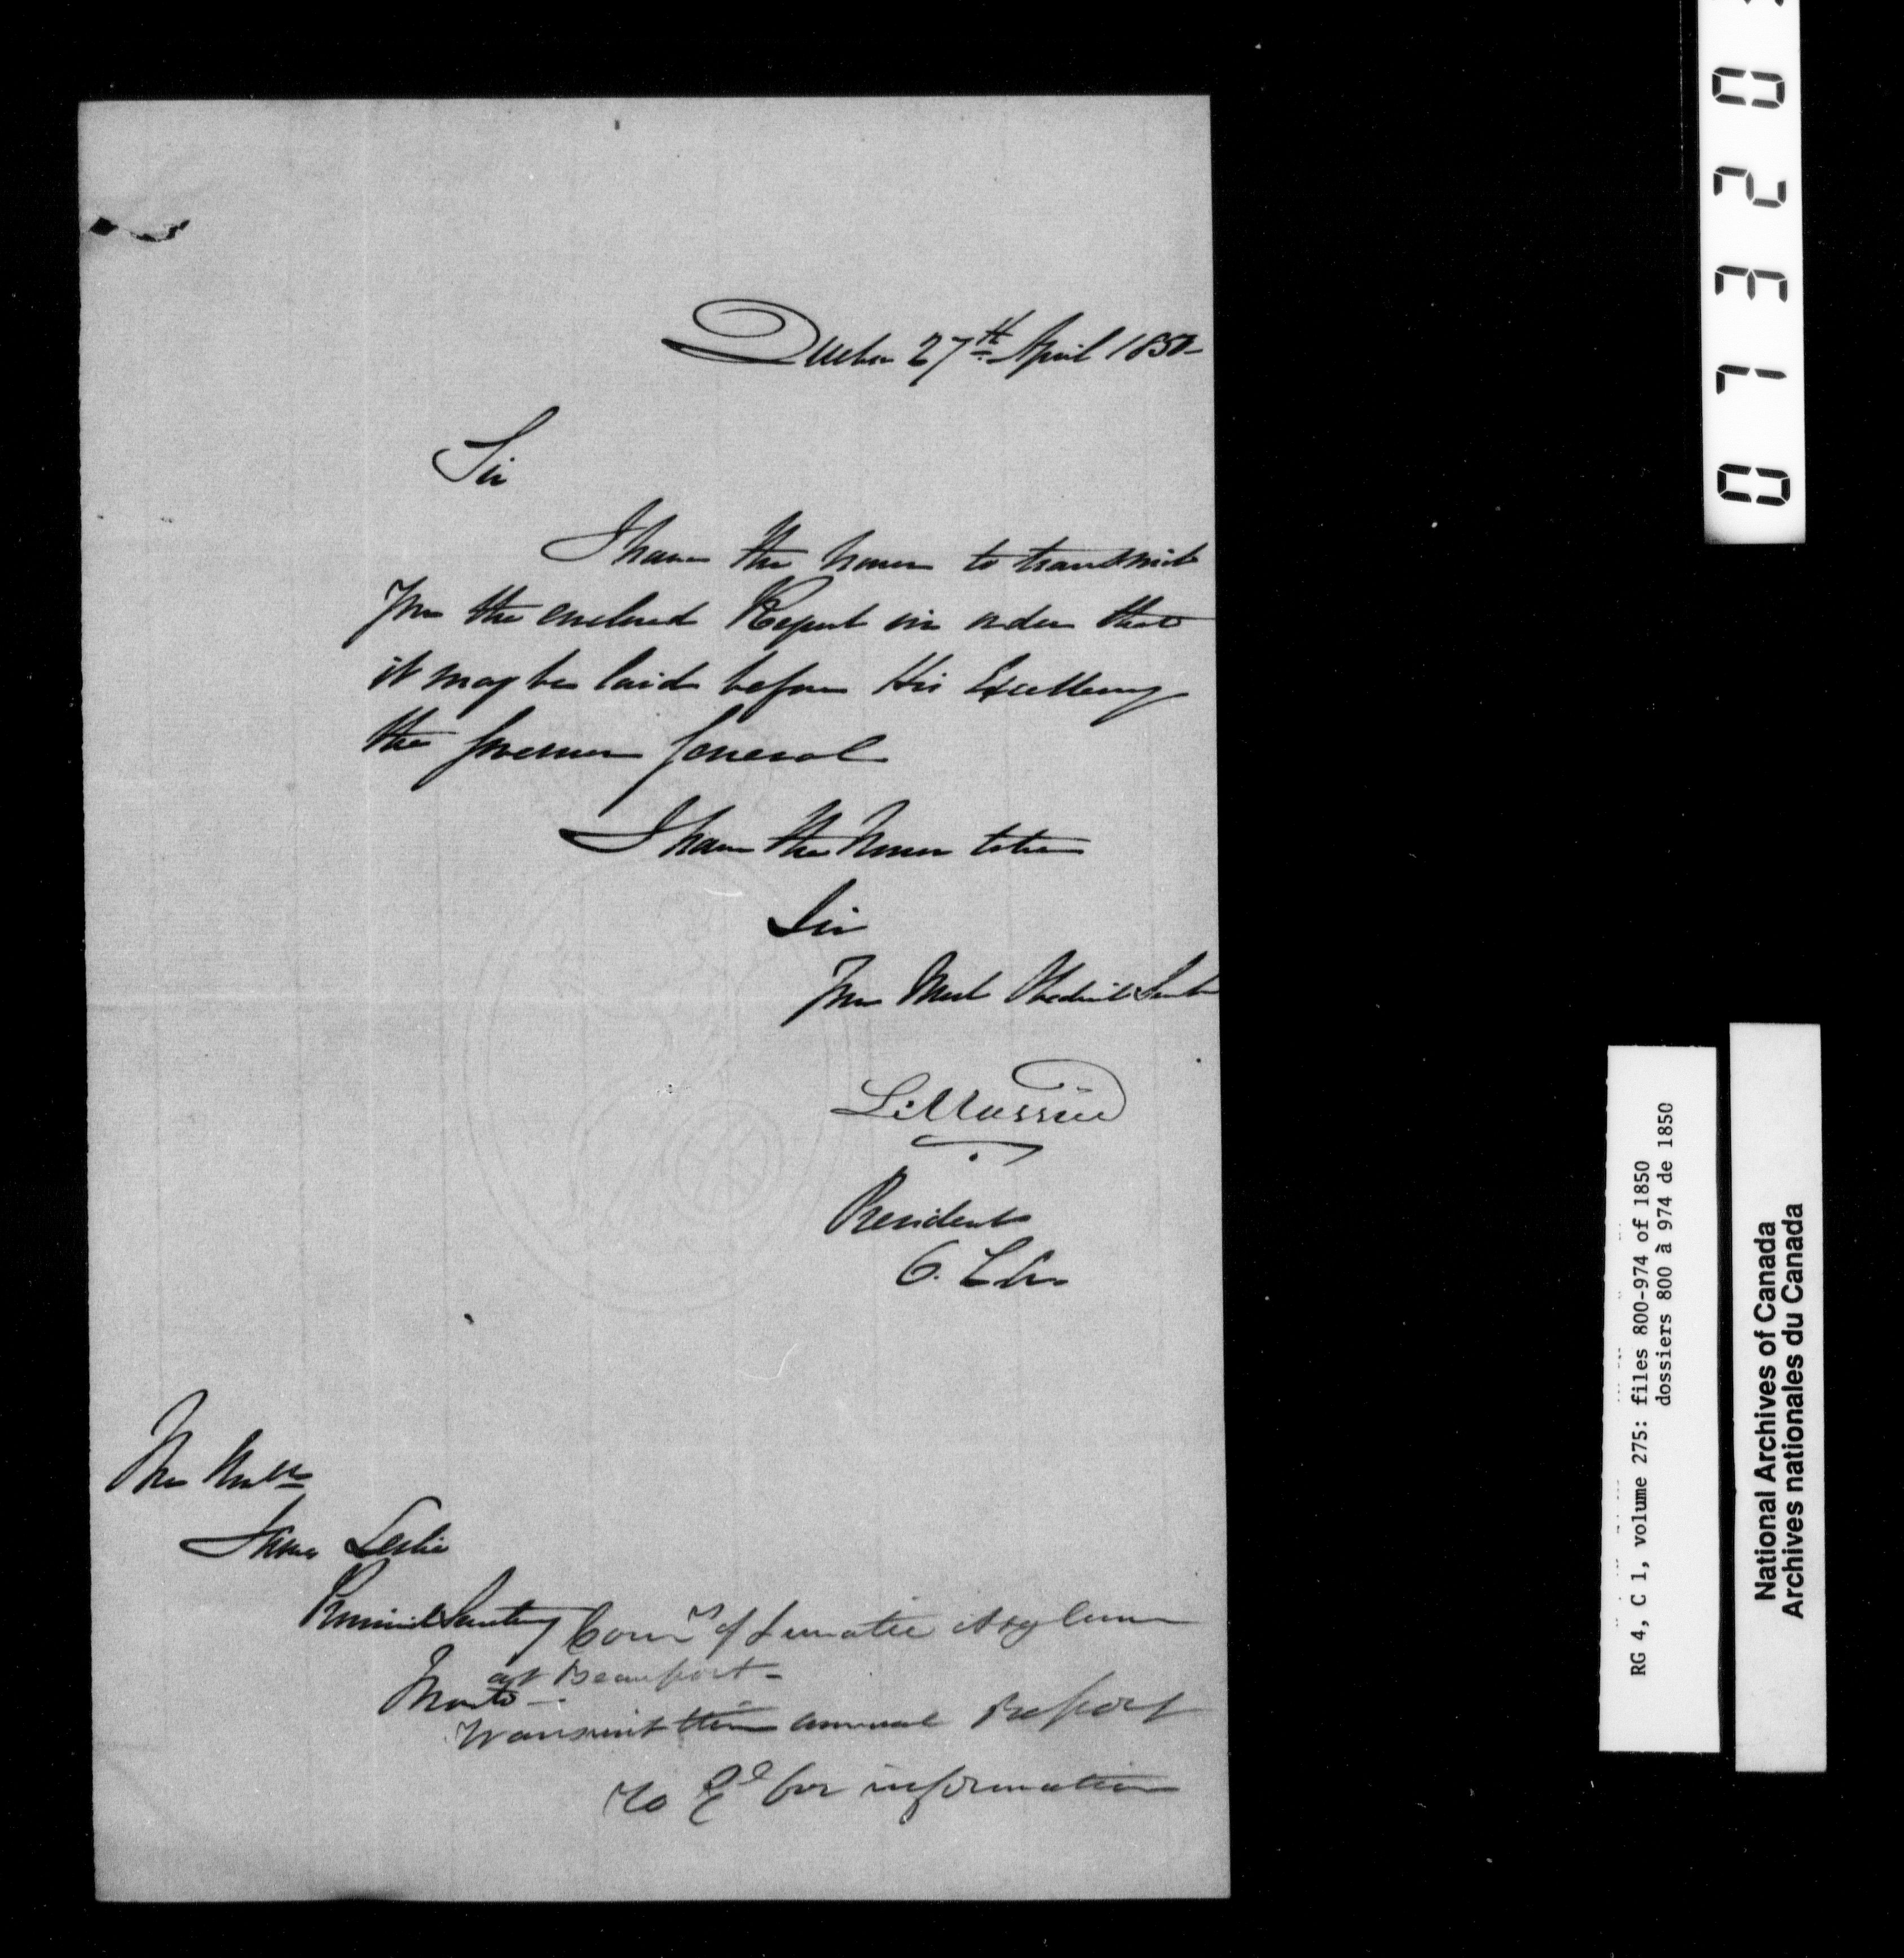 Quebec 27th April 1850-
Sir
I have the honor to transmit
you the enclosed Report in order that
it may be laid before His Excellency
the Governor General
I have the honor to be
Sir
Your Most Obedient Servt
L: Massüe
President
C. L. A.
The Honble
James Leslie
Provincial Secretary
Comrs of Lunatic Asylum
at Beauport-
Transmit their annual Report
to for information
RG 4, C 1, volume 275: files 800-974 of 1850
dossiers 800 à 974 de 1850
National Archives of Canada
Archives nationales du Canada
07320